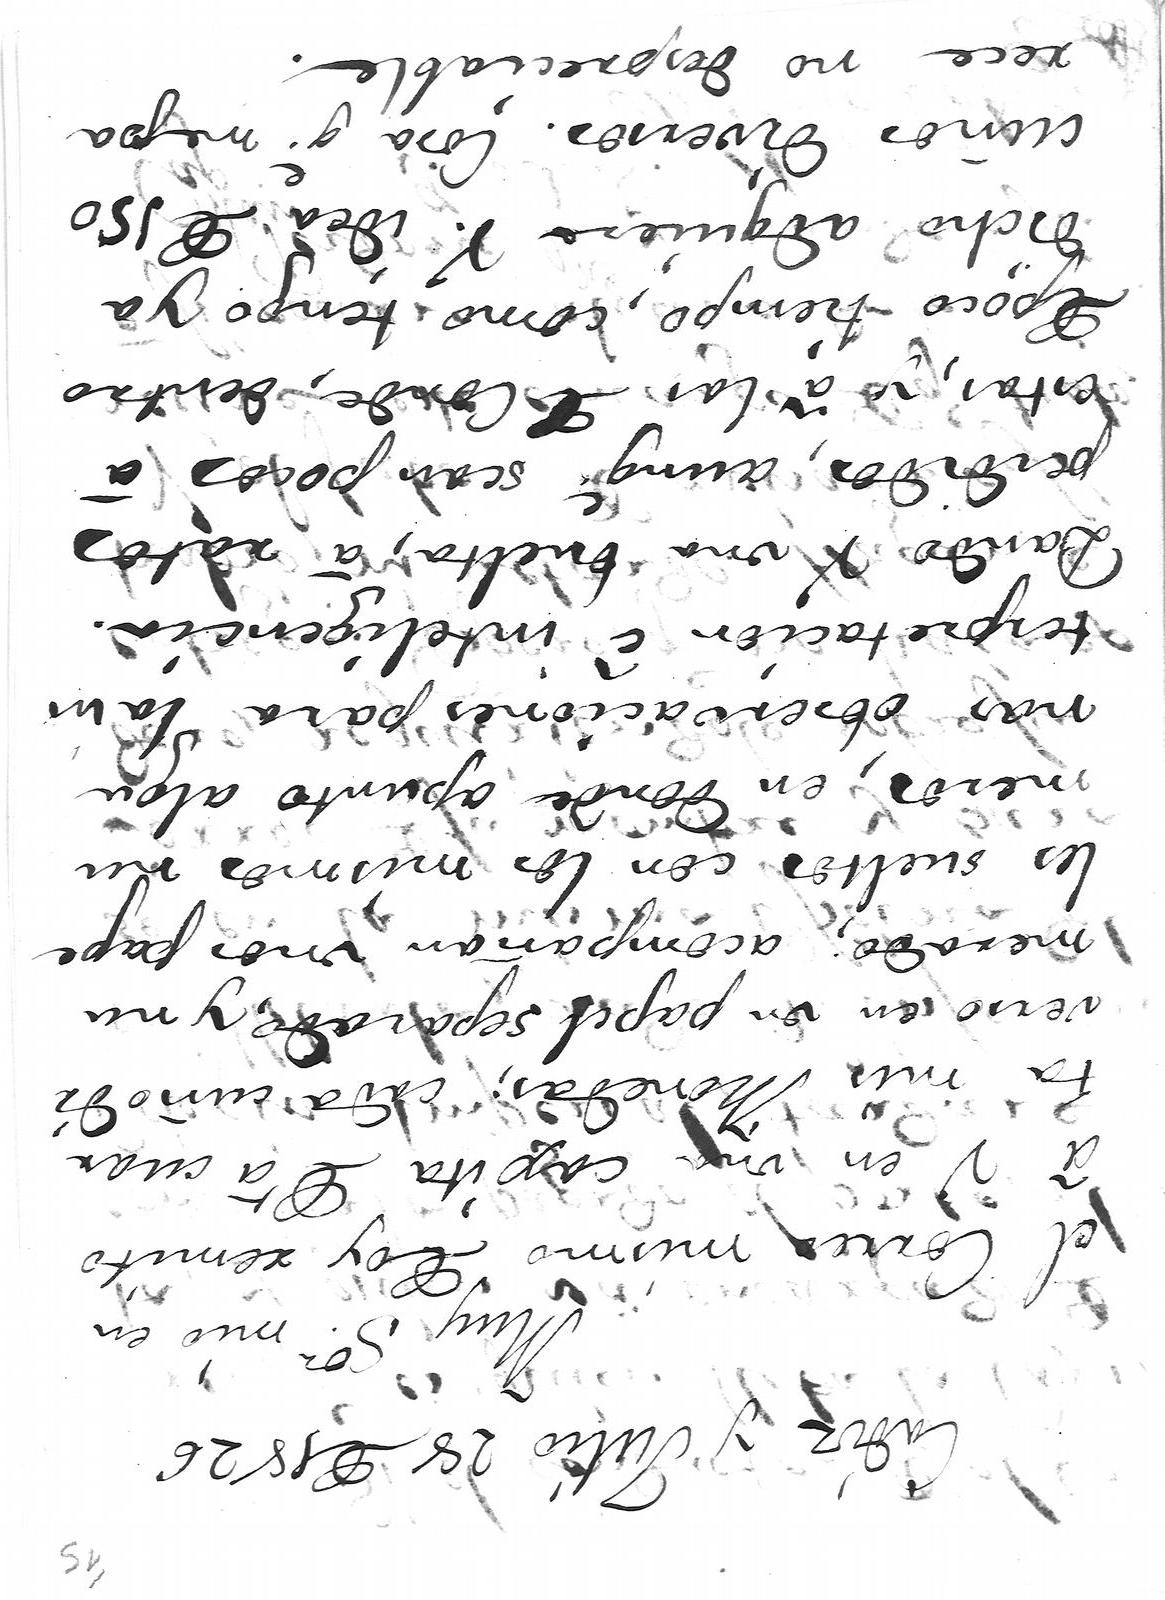 15
Cadiz y Julio 28 de 1826
Muy S.or mio en
el Correo mismo de oy remito
â V en una caxita de â cuar
ta mis Monedas; cada cuño di
verso en un papel separado, y nu
merado; acompañan unos pape
les sueltos con los mismos nu
meros, en donde apunto algu
nas observaciones para la in
terpretacion ê inteligencia.
Dando V una buelta, â ratos
perdidos, aunq.e sean pocos â
estas, y â las de Conde, dentro
de poco tiempo, como tengo ya
dicho adquiere V. idea de 150
cuños diversos. Cosa q.e me pa
rece no despreciable.